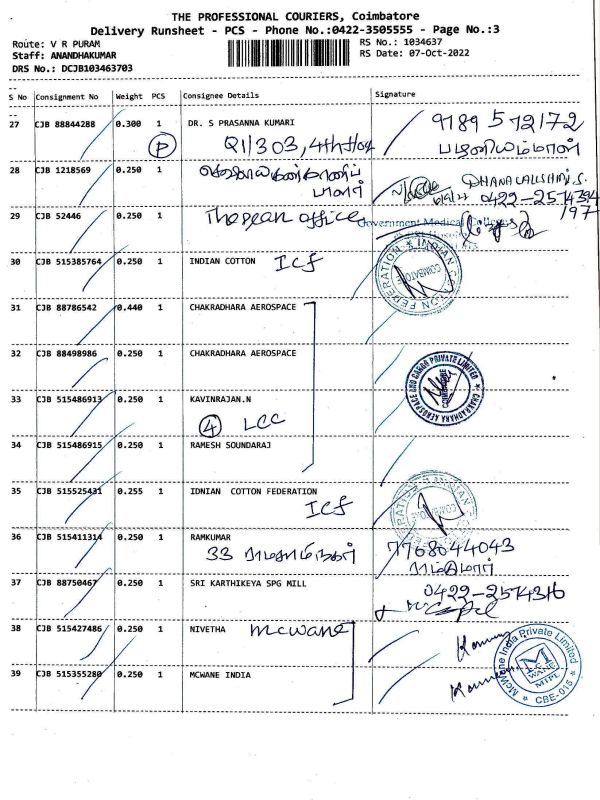 THE PROFESSIONAL COURIERS, Coimbatore
Delivery Runsheet - PCS - Phone No.:0422-3505555 - Page No.:3
Route: V R PURAM
RS No.: 1034637
Staff: ANANDHAKUMAR
RS Date: 07-Oct-2022
DRS No.: DCJB103463703
S No Consignment No Weight PCS Consignee Details Signature
27 CJB 88844288 0.300 1 DR. S PRASANNA KUMARI 9789 572172
P Q1/303, 4th
28 CJB 1218569 0.250 1 DHANALAKSHMI.S.
0422-2574394
/97
29 CJB 52446 0.250 1 The Dean office Government Medical College
30 CJB 515385764 0.250 1 INDIAN COTTON ICF
INDIAN COTTON FEDERATION COIMBATORE
31 CJB 88786542 0.440 1 CHAKRADHARA AEROSPACE
32 CJB 88498986 0.250 1 CHAKRADHARA AEROSPACE
CHAKRADHARA AEROSPACE AND CARGO PRIVATE LIMITED COIMBATORE
33 CJB 515486913 0.250 1 KAVINRAJAN.N
4 LCC
34 CJB 515486915 0.250 1 RAMESH SOUNDARAJ
35 CJB 515525431 0.255 1 IDNIAN COTTON FEDERATION
ICF
36 CJB 515411314 0.250 1 RAMKUMAR 7768044043
33 ராமசாமிநகர் ராம்குமார்
37 CJB 88750467 0.250 1 SRI KARTHIKEYA SPG MILL 0422-2574316
38 CJB 515427486 0.250 1 NIVETHA mcwane
39 CJB 515355280 0.250 1 MCWANE INDIA
McWane India Private Limited
M
WANE
MIPL
CBE-015